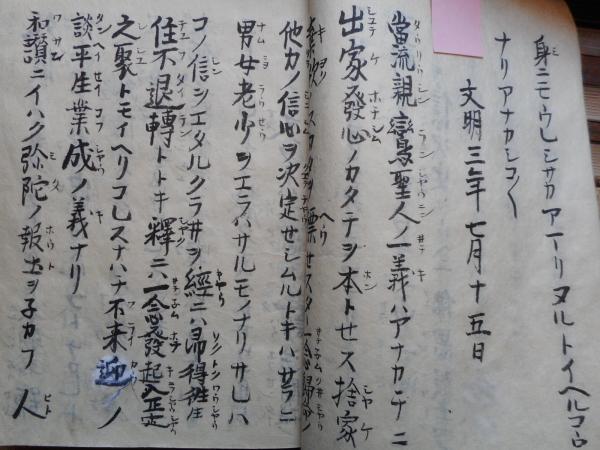 身ニモウレシサカアマリヌルトイヘルコヽロ
ナリアナカシコ〱
文明三年七月十五日
當流親鸞聖人ノ一義ハアナカチニ
出家發心ノカタチヲ本トセス捨家
棄欲ノスカタヲ標セスタヽ一念歸命ノ
他力ノ信心ヲ決定セシムルトキハサラニ
男女老少ヲエラハサルモノナリサレハ
コノ信ヲエタルクラヰヲ經ニハ即得往生
住不退轉トトキ釋ニハ一念發起入正定
之聚トモイヘリコレスナハチ不来迎ノ
談平生業成ノ義ナリ
和讃ニイハク弥陀ノ報土ヲ子カフ人